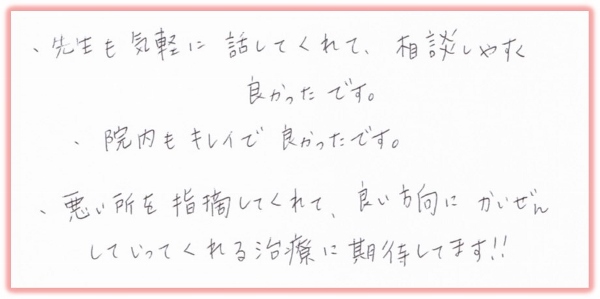 、先生も気軽に話してくれて、相談しやすく
良かったです。
、院内もキレイで良かったです。
、悪い所を指摘してくれて、良い方向にかいぜん
していってくれる治療に期待してます!!